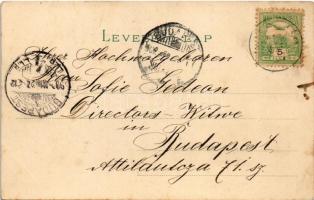 LEVELEZŐ-LAP
Ihrer Hochwolgeboren
Sofie Gedeon
Directors-Witwe
in
Budapest
Attilautcza 71. sz.
5